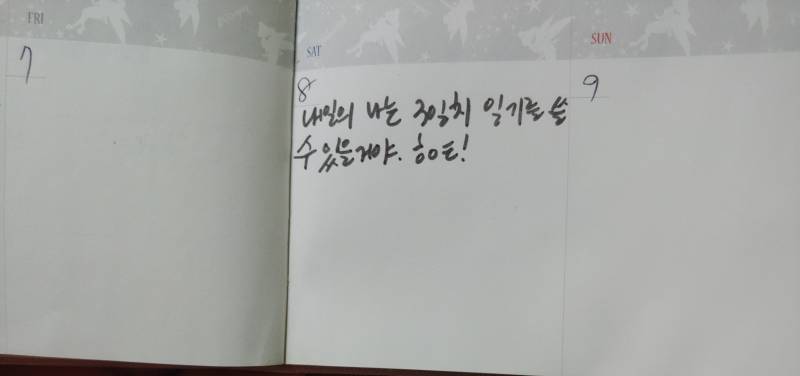 FRI
7
SAT
8
내일의 나는 3일치 일기를 쓸
수 있을거야. 히오드!
SUN
9